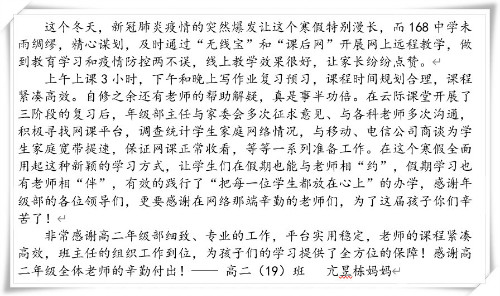 这个冬天，新冠肺炎疫情的突然爆发让这个寒假特别漫长，而 168 中学未
雨绸缪，精心谋划，及时通过“无线宝”和“课后网”开展网上远程教学，做
到教育学习和疫情防控两不误，线上教学效果很好，让家长纷纷点赞。
上午上课 3 小时，下午和晚上写作业复习预习，课程时间规划合理，课程
紧凑高效。自修之余还有老师的帮助解疑，真是事半功倍。在云际课堂开展了
三阶段的复习后，年级部主任与家委会多次征求意见、与各科老师多次沟通，
积极寻找网课平台，调查统计学生家庭网络情况，与移动、电信公司商谈为学
生家庭宽带提速，保证网课正常收看，等等一系列准备工作。在这个寒假全面
用起这种新颖的学习方式，让学生们在假期也能与老师相“约”，假期学习也
有老师相“伴”，有效的践行了“把每一位学生都放在心上”的办学，感谢年
级部的各位领导们，更要感谢在网络那端辛勤的老师们，为了这届孩子你们辛
苦了！
非常感谢高二年级部细致、专业的工作，平台实用稳定，老师的课程紧凑
高效，班主任的组织工作到位，为孩子们的学习提供了全方位的保障！感谢高
二年级全体老师的辛勤付出！—— 高二（19）班 亢昱栋妈妈